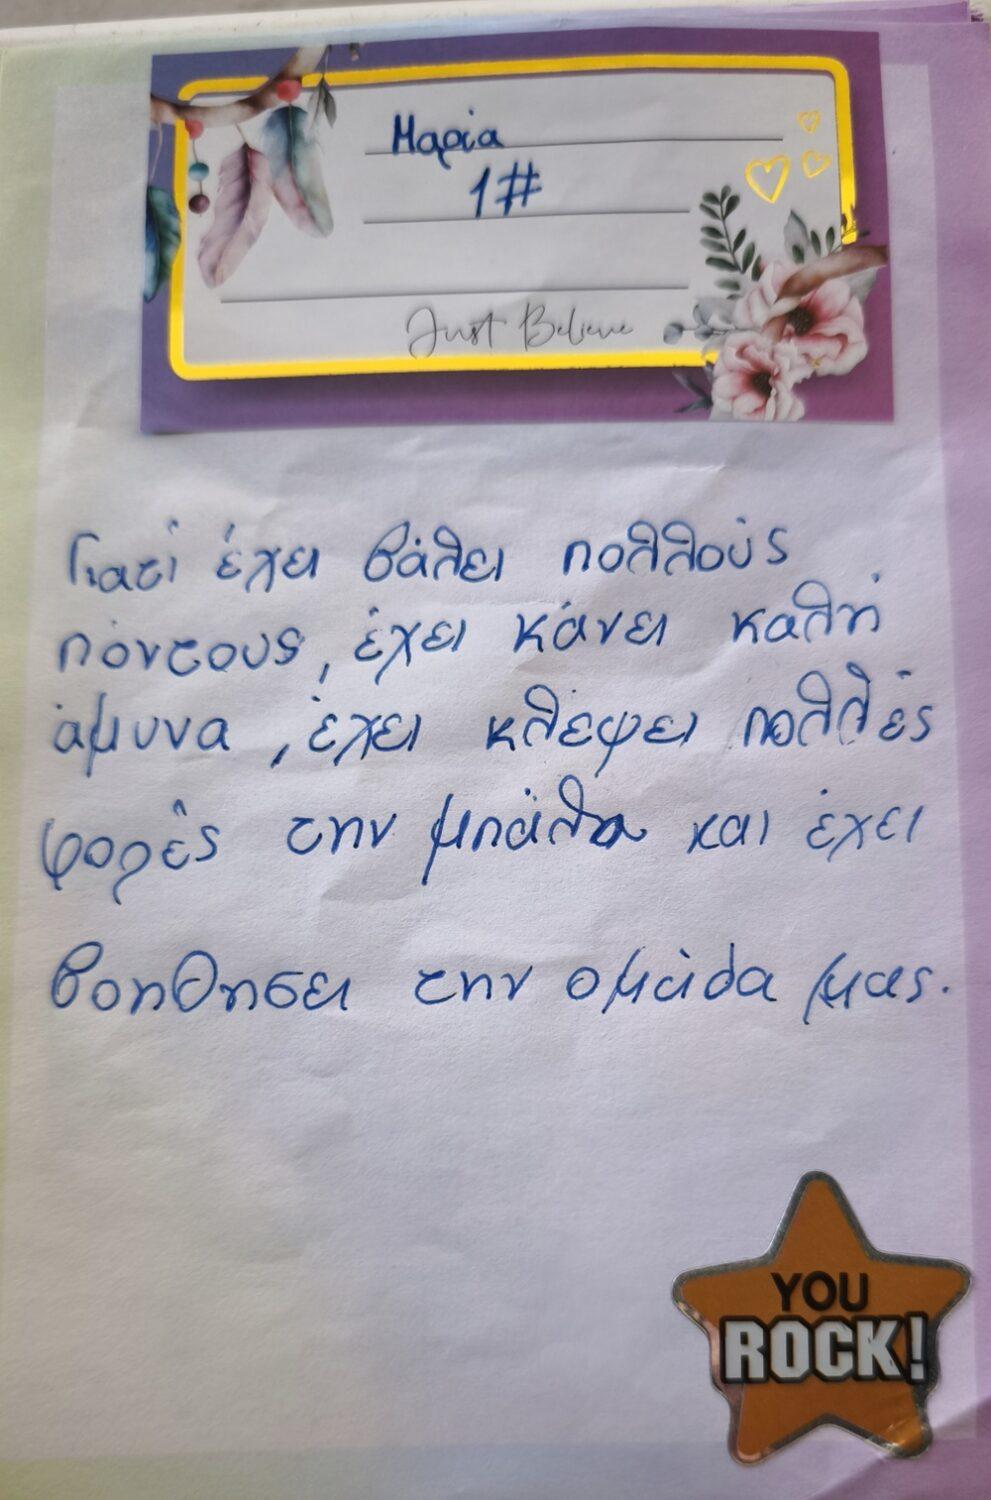 Μαρία
1#
Just Believe
Γιατί έχει βάλει πολλούς
πόντους, έχει κάνει καλή
άμυνα, έχει κλέψει πολλές
φορές την μπάλα και έχει
βοηθησει την ομάδα μας.
YOU
ROCK!